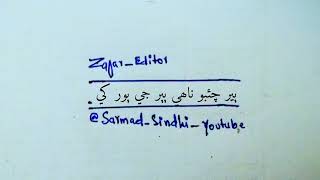 Zafar_Editor
پير چئبو ناهي پير جي پور کي.
@Sarmad_Sindhi_Youtube